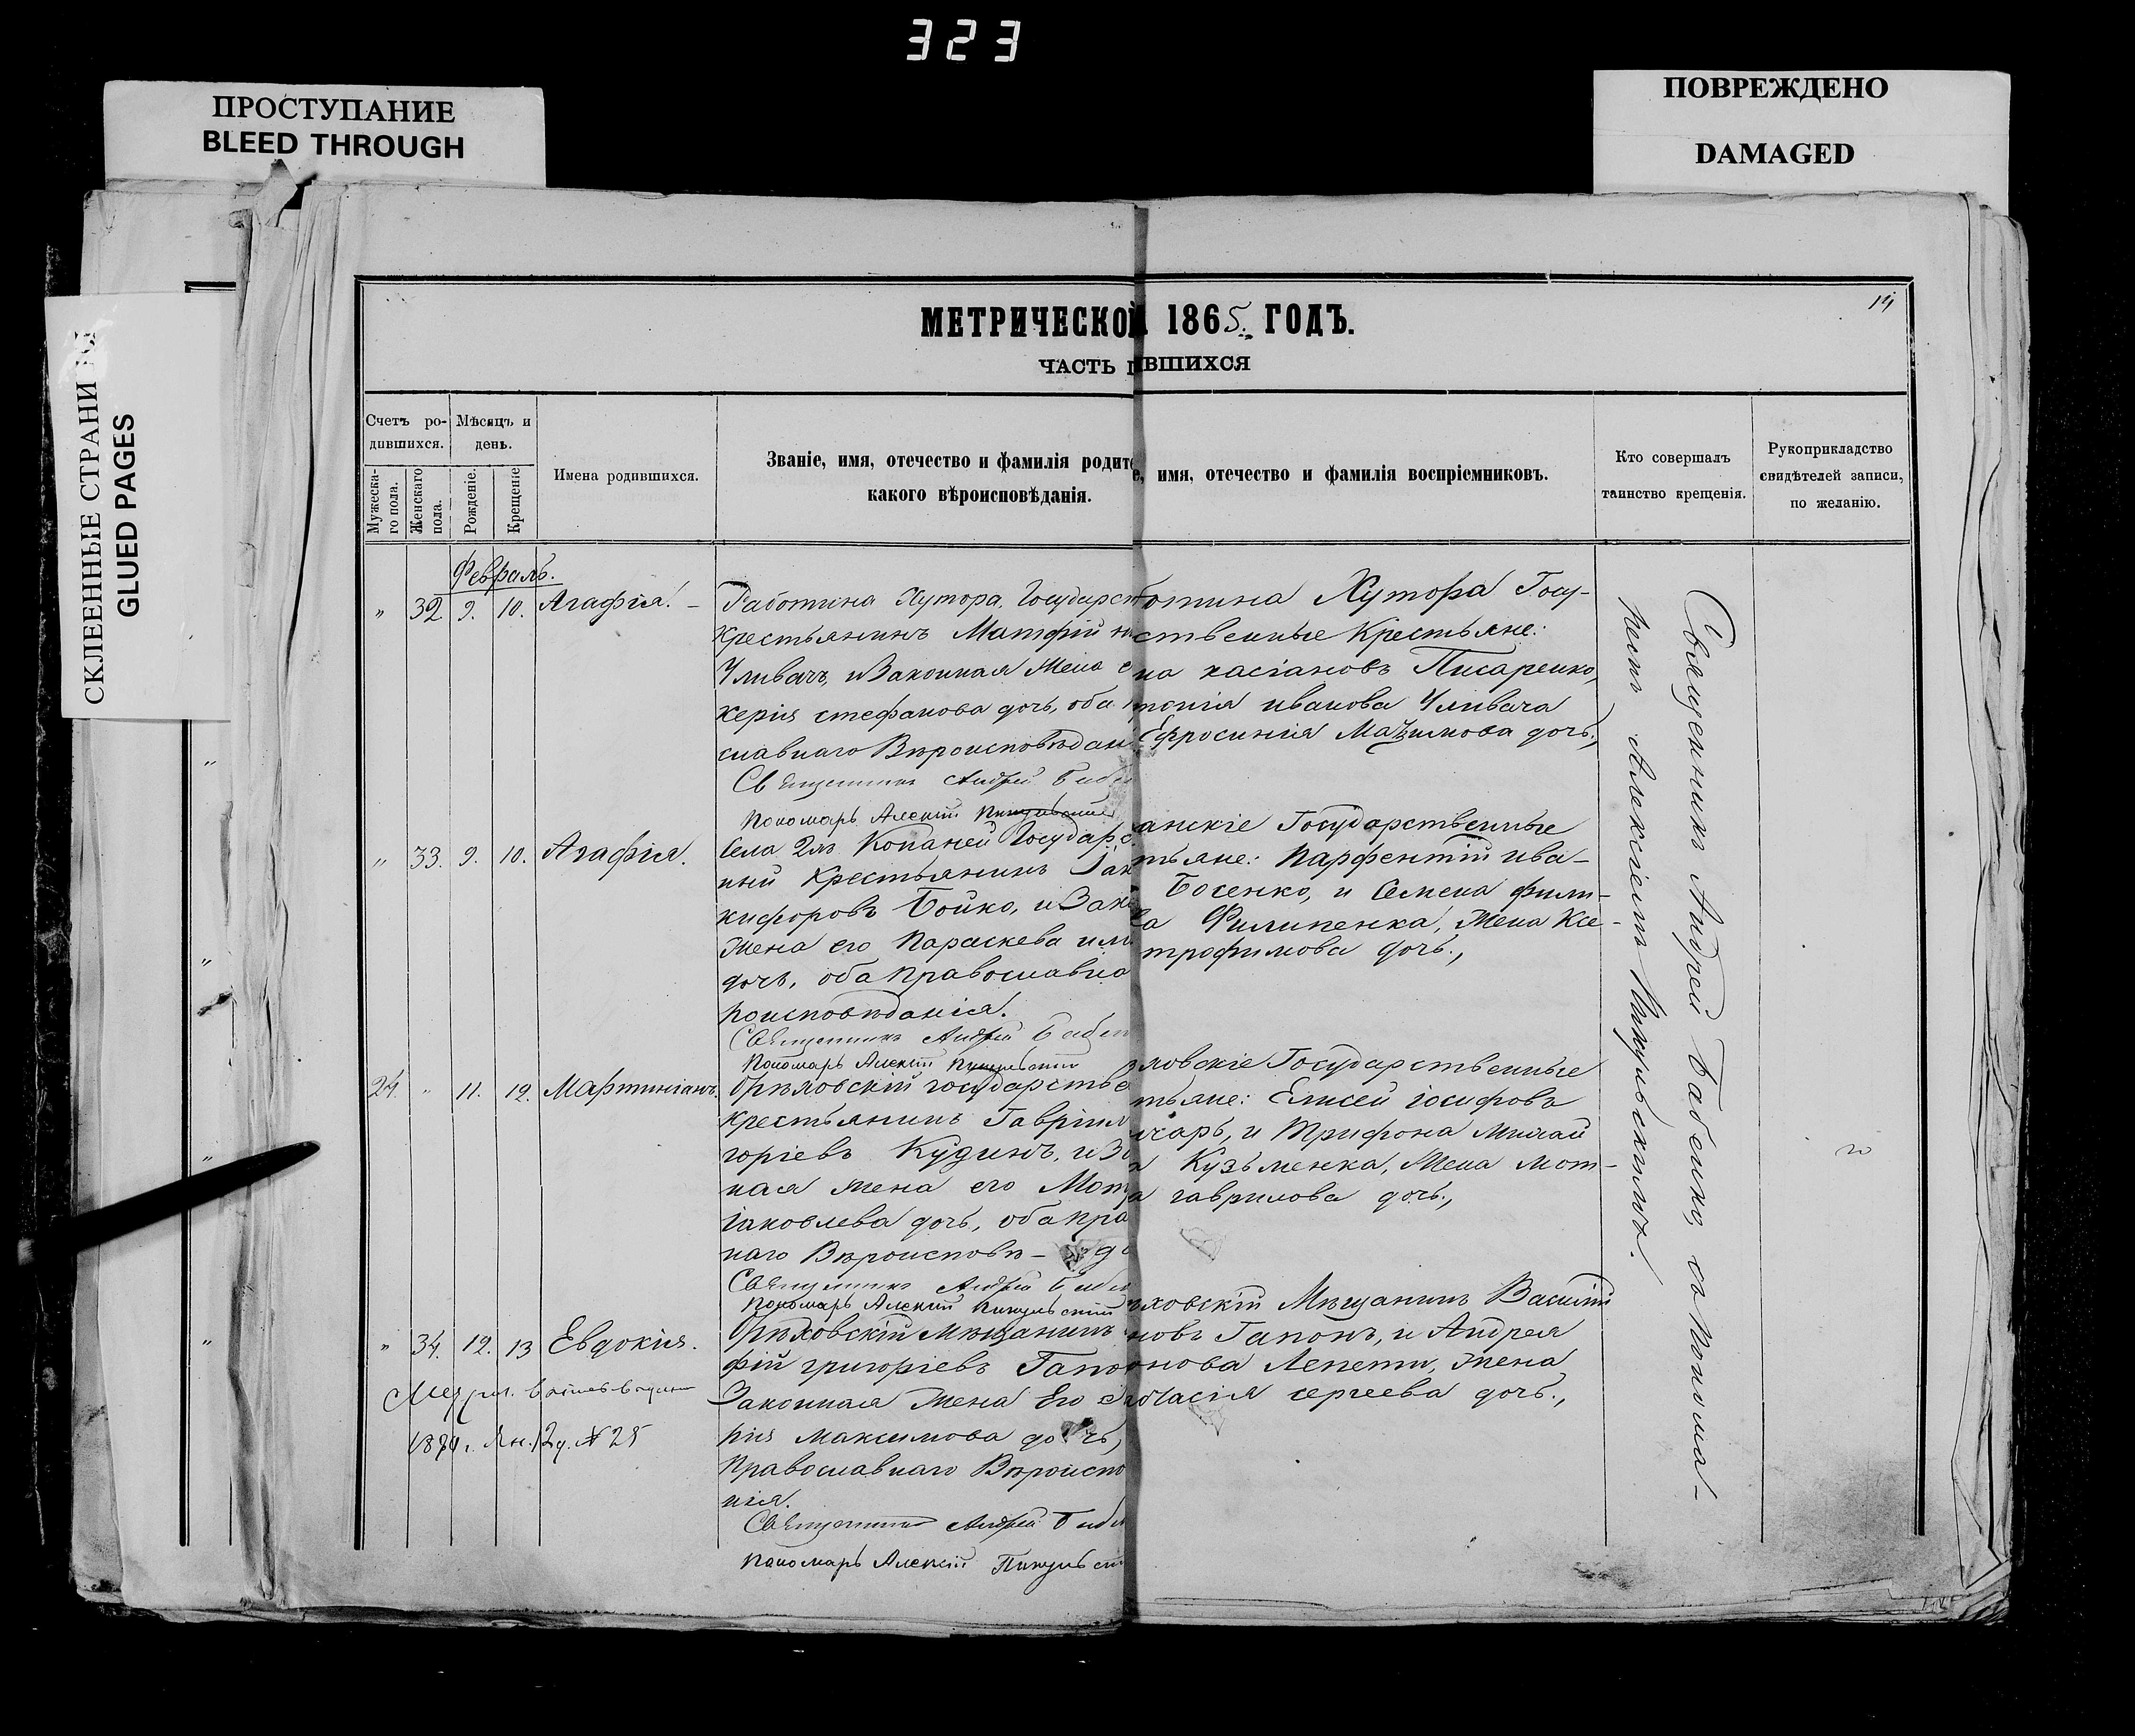 323
ПРОСТУПАНИЕ
BLEED THROUGH
ПОВРЕЖДЕНО
DAMAGED
СКЛЕЕННЫЕ СТРАНИ
GLUED PAGES
14
МЕТРИЧЕСКОЙ 1865. ГОДЪ.
ЧАСТЬ ВШИХСЯ
Счетъ ро-
дившихся.
Мужеска-
го пола.
Женскаго
пола.
Мѣсяцъ и
день.
Рожденіе.
Крещеніе
Имена родившихся.
Званіе, имя, отечество и фамилія родите
какого вѣроисповѣданія.
, имя, отечество и фамилія воспріемниковъ.
Кто совершалъ
таинство крещенія.
Рукоприкладство
свидѣтелей записи,
по желанію.
Февраль.
" 32. 9. 10. Агафія. –
Работина Хутора, Государст
Крестьянинъ Матфій
Чливачъ, и Законная Жена
херія стефанова дочь, оба
славнаго Вѣроисповѣдан
Священникъ Андрей Бабе
Пономарь Алексій Пикульскій
отина Хутора Госу-
ственные Крестьяне:
на касіановъ Писаренко,
тонія иванова Чливача
Ефросинія Мазимова дочь.,
" 33. 9. 10. Агафія.
Села 2хъ Копаней Государс
ный Крестьянинъ
кифоровъ Бойко, и Зак
Жена его Параскева
дочь, оба Православна
роисповѣданія.
Священникъ Андрей Бабен
Пономарь Алексій Пикульскій
анскіе Государственные
тьяне: Парфентій ива-
Босенко, и Семена фили-
ва Филипенка, Жена Ксе-
трофимова дочь.,
24. " 11. 12. Мартиніанъ.
Орѣховскій государстве
Крестьянинъ Гавріил
горіевъ Кудинъ, и За
ная жена его Мот
іаковлева дочь, оба пра
наго Вѣроисповѣ- д
Священникъ Андрей Бабе
Пономарь Алексій Пикульскій
ховскіе Государственные
тьяне: Елисей іосифовъ
чарь, и Трифона Михай
а Кузьменка, Жена Мот-
а гаврилова дочь.,
" 34. 12. 13 Евдокія.
1874. Ян. 12 д. № 25
Орѣховскій Мѣщанинъ
фій григоріевъ Гапон
Законная Жена Его
рія Максимова дочь,
Православнаго Вѣроиспо
нія.
Священникъ Андрей Бабе
Пономарь Алексій Пикульскі
ховскій Мѣщанинъ Василій
новъ Гапонъ, и Андрея
онова Лепети, Жена
тасія сергеева дочь.,
Священникъ Андрей Бабенко, съ Понома-
ремъ Алексіемъ Пикульскимъ.